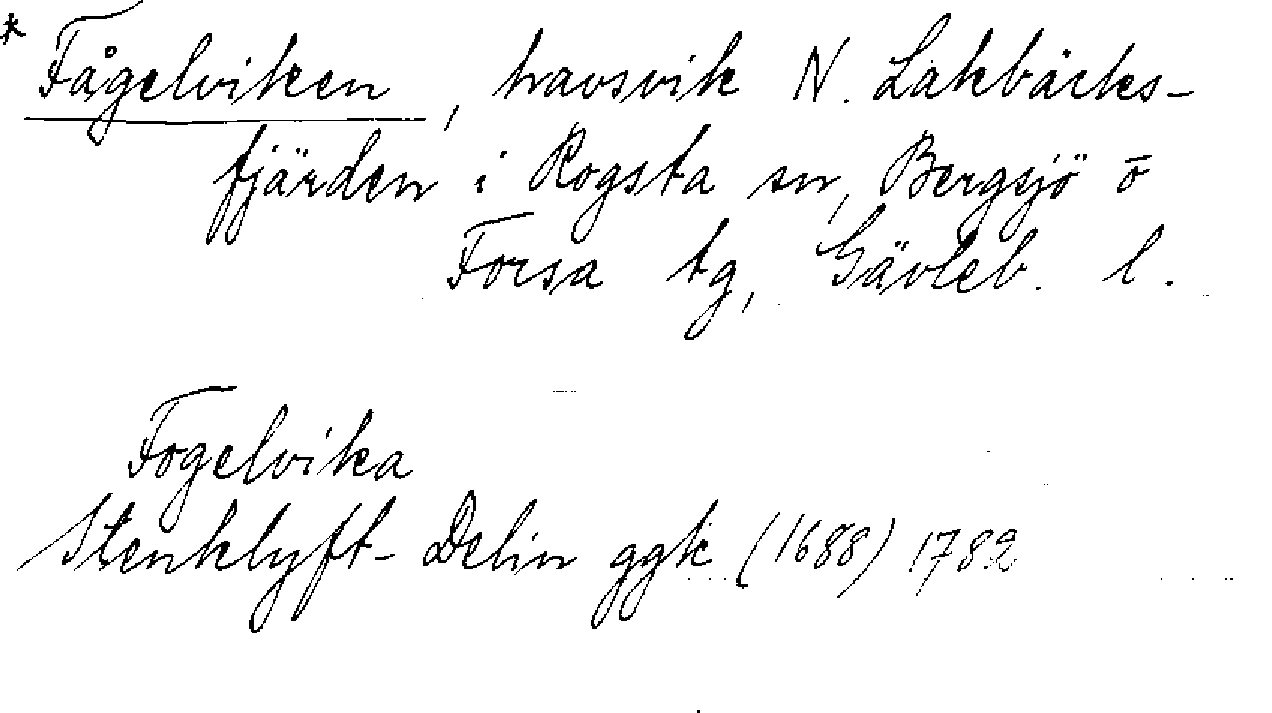 * Fågelviken, havsvik N. Lakbäcks-
fjärden i Rogsta sn, Bergsjö o
Forsa tg, Gävleb. l.
Fogelvika
Stenklyft- Delin ggk (1688) 1782